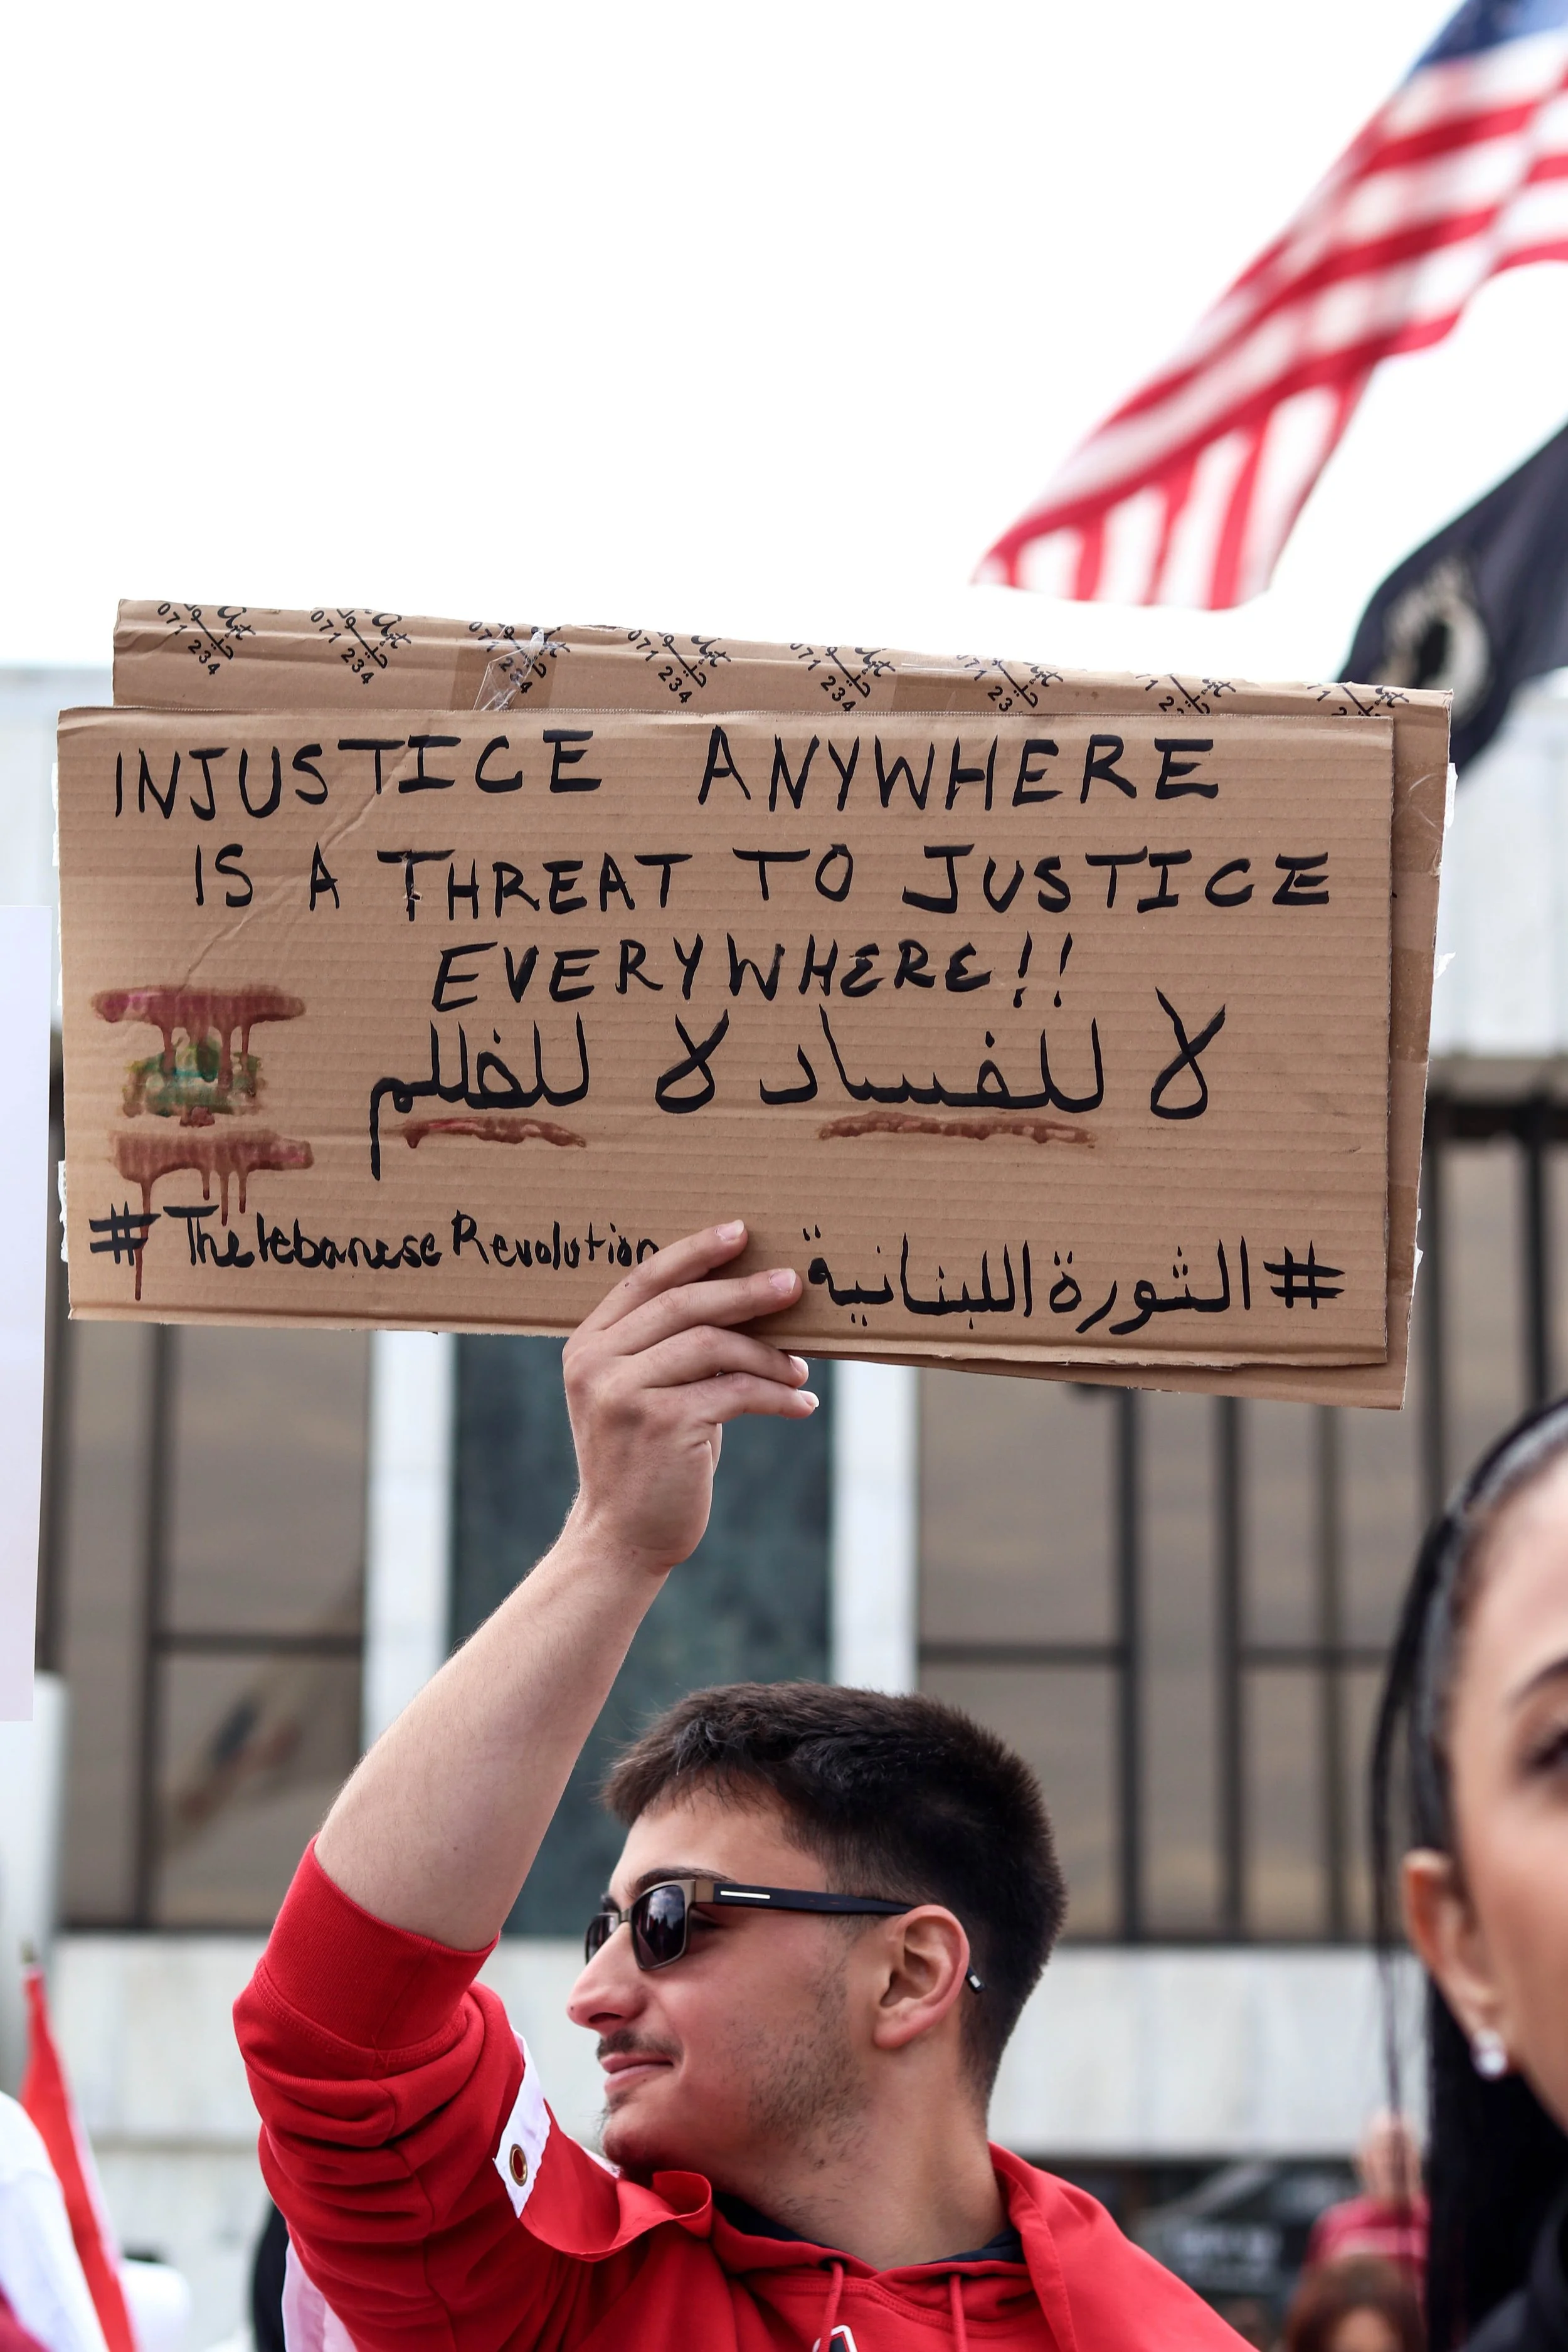 071 071 071 071
234 234 234 234
INJUSTICE ANYWHERE
IS A THREAT TO JUSTICE
EVERYWHERE!!
لا للفساد لا للظلم
#TheLebanese Revolution
#الثورة اللبنانية